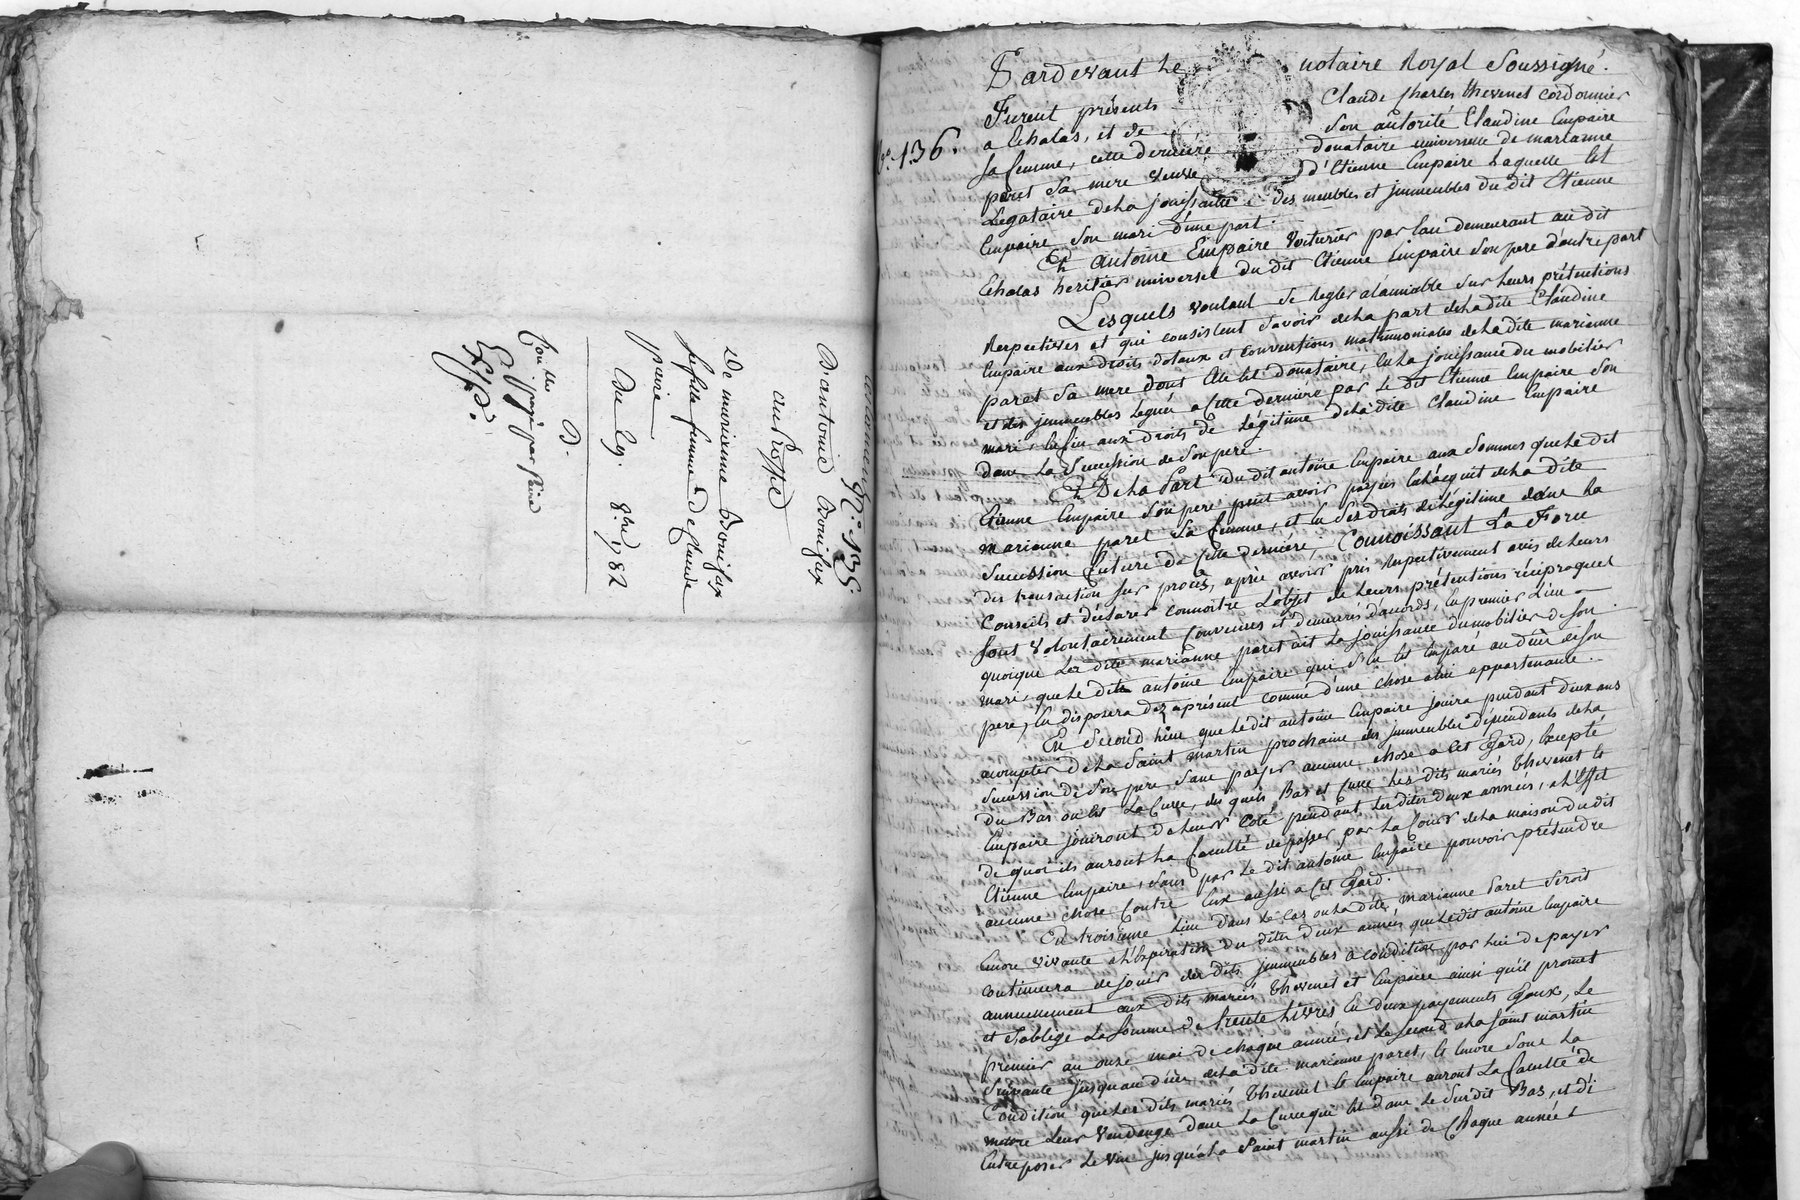 N.° 135.
D'antoine Bonifax
au Proffit
De marianne Bonifax
sa fille femme de Claude
paire
Du 29. 8bre 1782
N.° 136.
Pardevant Le notaire Royal Soussigné.
Furent présents Claude Charles thevenet cordonnier
a Echalas, et de Son autorité Claudine Empaire
sa femme, cette derniere donataire universelle de marianne
paret Sa mere veuve d'Etienne Empaire Laquelle Est
Legataire dela jouissance des meubles et jmmeubles du dit Etienne
Empaire Son mari d'une part.
Et antoine Empaire voiturier par Eau demeurant au dit
Echalas heritier universel du dit Etienne Empaire Son pere d'autre part
Lesquels voulant Se Regler a l'amiable Sur Leurs prétentions
Respectives et qui consistent Savoir dela part deladite Claudine
Empaire aux droits dotaux et conventions matrimoniales deladite marianne
paret Sa mere dont Elle Est donataire, En la jouissance du mobilier
et des jmmeubles Legués a Cette derniere par Le dit Etienne Empaire Son
mari Enfin aux droits de Légitime deladite Claudine Empaire
dans La Succession de Son pere.
Et De la Part du dit antoine Empaire aux Sommes que Le dit
Etienne Empaire Son pere peut avoir payées En l'acquit deladite
marianne paret Sa femme, et En Ses droits de Légitime dans La
Succession future de Cette derniere, Connoissant La Force
des transaction Sur procès, après avoir pris Respectivement avis de Leurs
Conseils et déclarer connoitre L'objet de Leurs prétentions réciproques
Sont volontairement Convenues et demeurés d'accords, En premier Lieu
quoique La dite marianne paret ait La jouissance du mobilier de Son
mari, que Le dit antoine Empaire qui S'en Est Emparé au décès de Son
pere, En disposera dez aprésent comme d'une chose a lui appartenante.
En Second Lieu que Ledit antoine Empaire jouira pendant deux ans
acompter de La Saint martin prochaine des jmmeubles dépendants dela
Succession de Son pere Sans payer aucune chose a Cet Egard, Excepté
du Bas ou Est La Cuve, des quels Bas et Cuve Les dits mariés thevenet et
Empaire jouiront de Leur Coté pendant Les dites deux années, a L'effet
de quoi ils auront La faculté de passer par La Cour dela maison du dit
Etienne Empaire, Sans par Le dit antoine Empaire pouvoir prétendre
aucune chose Contre Eux aussi a Cet Egard.
En troisieme Lieu dans Le cas ou La dite marianne Paret Seroit
Encore vivante a L'Expiration du dites deux années que Le dit antoine Empaire
continuera de jouir des dits jmmeubles a condition par Lui de payer
annuellement aux dits mariés thevenet et Empaire ainsi qu'il promet
et S'oblige La Somme de trente Livres En deux payements Egaux, Le
premier au onze mai de chaque année, et Le Second a La Saint martin
Suivante jusqu'au décès deladite marianne paret, Et Encore Sous La
Condition que Les dits mariés thevenet Et Empaire auront La faculté de
mettre Leur Vendange dans La Cuve qui Est dans Le Susdit Bas, et d'i
Entreposer Le vin jusqu'a La Saint martin aussi de Chaque année